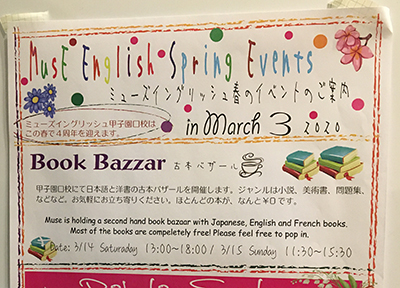 MusE English Spring Events
ミューズイングリッシュ春のイベントのご案内
ミューズイングリッシュ甲子園口校は
この春で4周年を迎えます。
in March 3 2020
Book Bazzar 古本バザール
甲子園口校にて日本語と洋書の古本バザールを開催します。ジャンルは小説、美術書、問題集、
などなど。お気軽にお立ち寄りください。ほとんどの本が、なんと¥0です。
Muse is holding a second hand book bazaar with Japanese, English and French books.
Most of the books are compeletely free! Please feel free to pop in.
Date: 3/14 Saturaday 13:00~18:00/ 3/15 Sunday 11:30~15:30